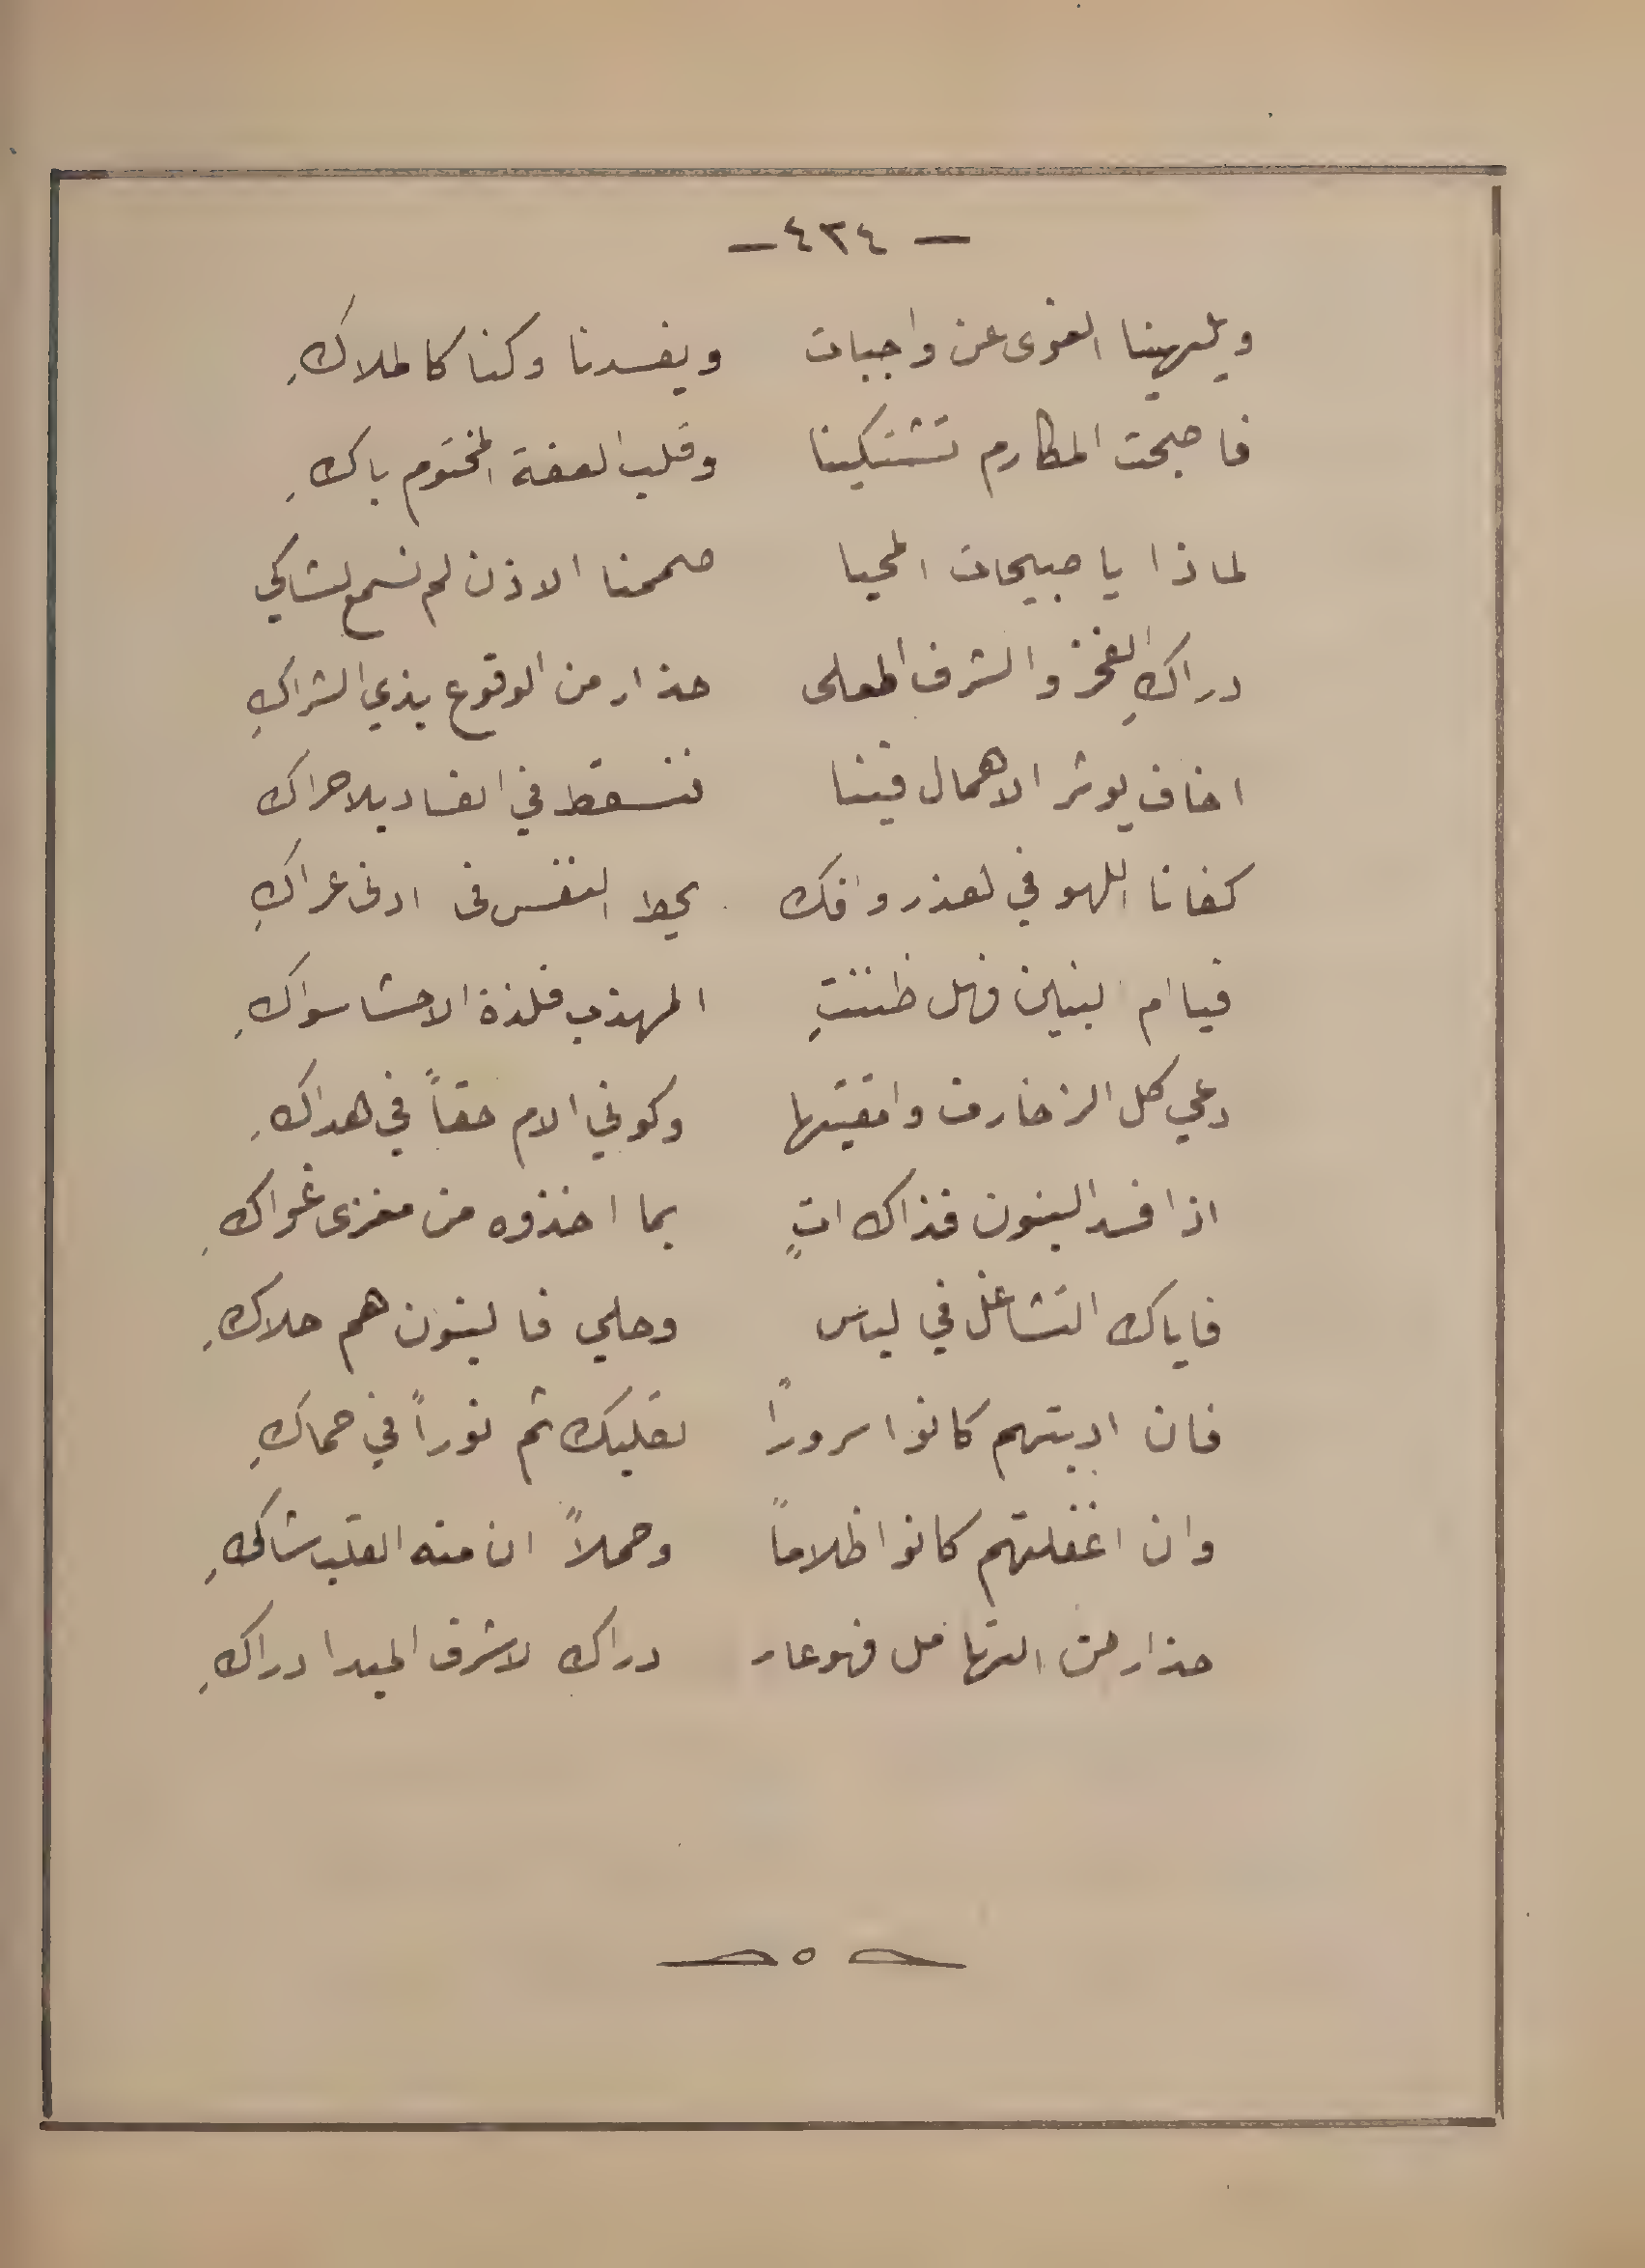 — ٤٢٤ —
ويلهينا الغوى عن واجبات ويفسدنا وكنا كالملاكِ
فاصبحت المكارم تشتكينا وقلب العفة المختوم باكِ
لماذا يا صبيحات المحيا صممنا الاذن لم نسمع لشاكي
دراكِ الفخر والشرف المعلى حذار من الوقوع بذي الشراكِ
اخاف يوثر الاهمال فينا فنسقط في الفساد بلا حراك
كفانا اللهو في لعذر وافك يحط النفس فى ادنى عراكِ
فيا ام البنين فهل ظننتِ المهذب فلذة الاحشا سواكِ
دعي كل الزخارف وامقتيها وكوني الام حقاً في هداكِ
اذا فسد البنون فذاك اتٍ بما اخذوه من مغزى غواكِ
فاياك التشاغل في لباس وحلي فالبنون هم حلاكِ
فان ادبتهم كانوا سروراً لقلبك ثم نوراً في حماكِ
وان اغفلتهم كانوا ظلاماً وحملاً ان منه القلب شاكِ
حذار من التهامل فهو عار دراك لاشرف المبدا دراكِ